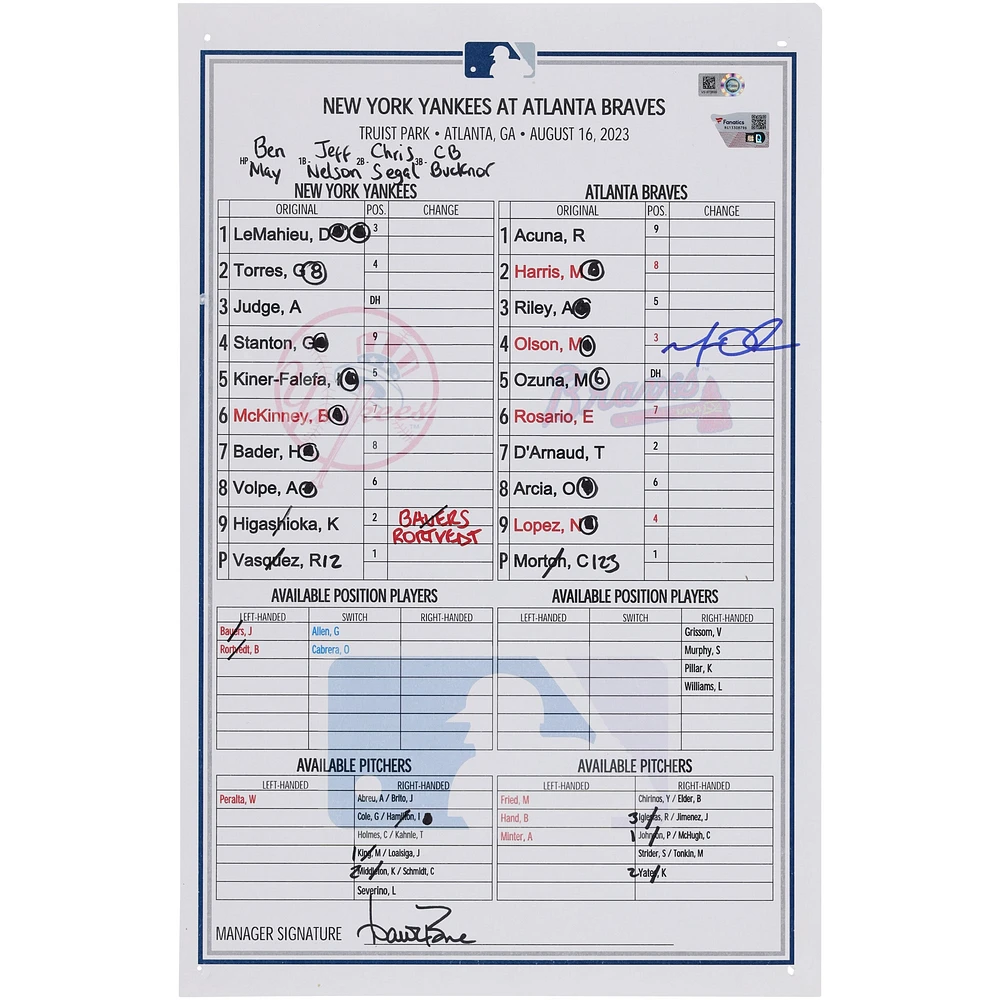 NEW YORK YANKEES AT ATLANTA BRAVES
TRUIST PARK • ATLANTA, GA • AUGUST 16, 2023
Fanatics
HP- Ben May 1B- Jeff Nelson 2B- Chris Segal 3B- CB Bucknor
NEW YORK YANKEES
ORIGINAL POS. CHANGE
1 LeMahieu, D 3
2 Torres, G 8 4
3 Judge, A DH
4 Stanton, G 9
5 Kiner-Falefa, I 5
6 McKinney, B 7
7 Bader, H 8
8 Volpe, A 6
9 Higashioka, K 2 BAUERS
RORTVEDT
P Vasquez, R 12 1
ATLANTA BRAVES
ORIGINAL POS. CHANGE
1 Acuna, R 9
2 Harris, M 8
3 Riley, A 5
4 Olson, M 3
5 Ozuna, M 6 DH
6 Rosario, E 7
7 D'Arnaud, T 2
8 Arcia, O 6
9 Lopez, N 4
P Morton, C 123 1
AVAILABLE POSITION PLAYERS
LEFT-HANDED SWITCH RIGHT-HANDED
Bauers, J Allen, G
Rortvedt, B Cabrera, O
AVAILABLE POSITION PLAYERS
LEFT-HANDED SWITCH RIGHT-HANDED
Grissom, V
Murphy, S
Pillar, K
Williams, L
AVAILABLE PITCHERS
LEFT-HANDED RIGHT-HANDED
Peralta, W Abreu, A / Brito, J
Cole, G / Hamilton, I
Holmes, C / Kahnle, T
1 King, M / Loaisiga, J
2 Middleton, K / Schmidt, C
Severino, L
AVAILABLE PITCHERS
LEFT-HANDED RIGHT-HANDED
Fried, M Chirinos, Y / Elder, B
Hand, B 3 Iglesias, R / Jimenez, J
Minter, A 1 Johnson, P / McHugh, C
Strider, S / Tonkin, M
2 Yates, K
MANAGER SIGNATURE